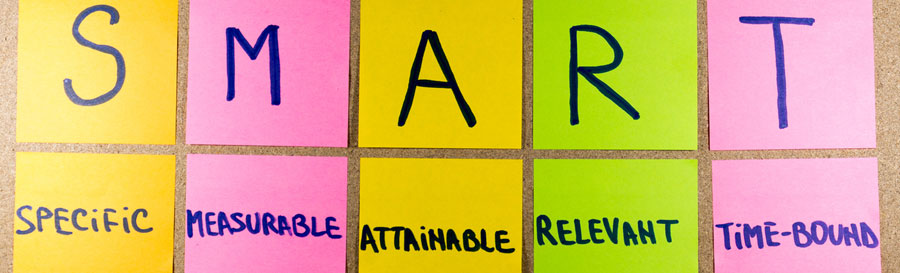 S M A R T
SPECIFIC MEASURABLE ATTAINABLE RELEVANT TIME-BOUND